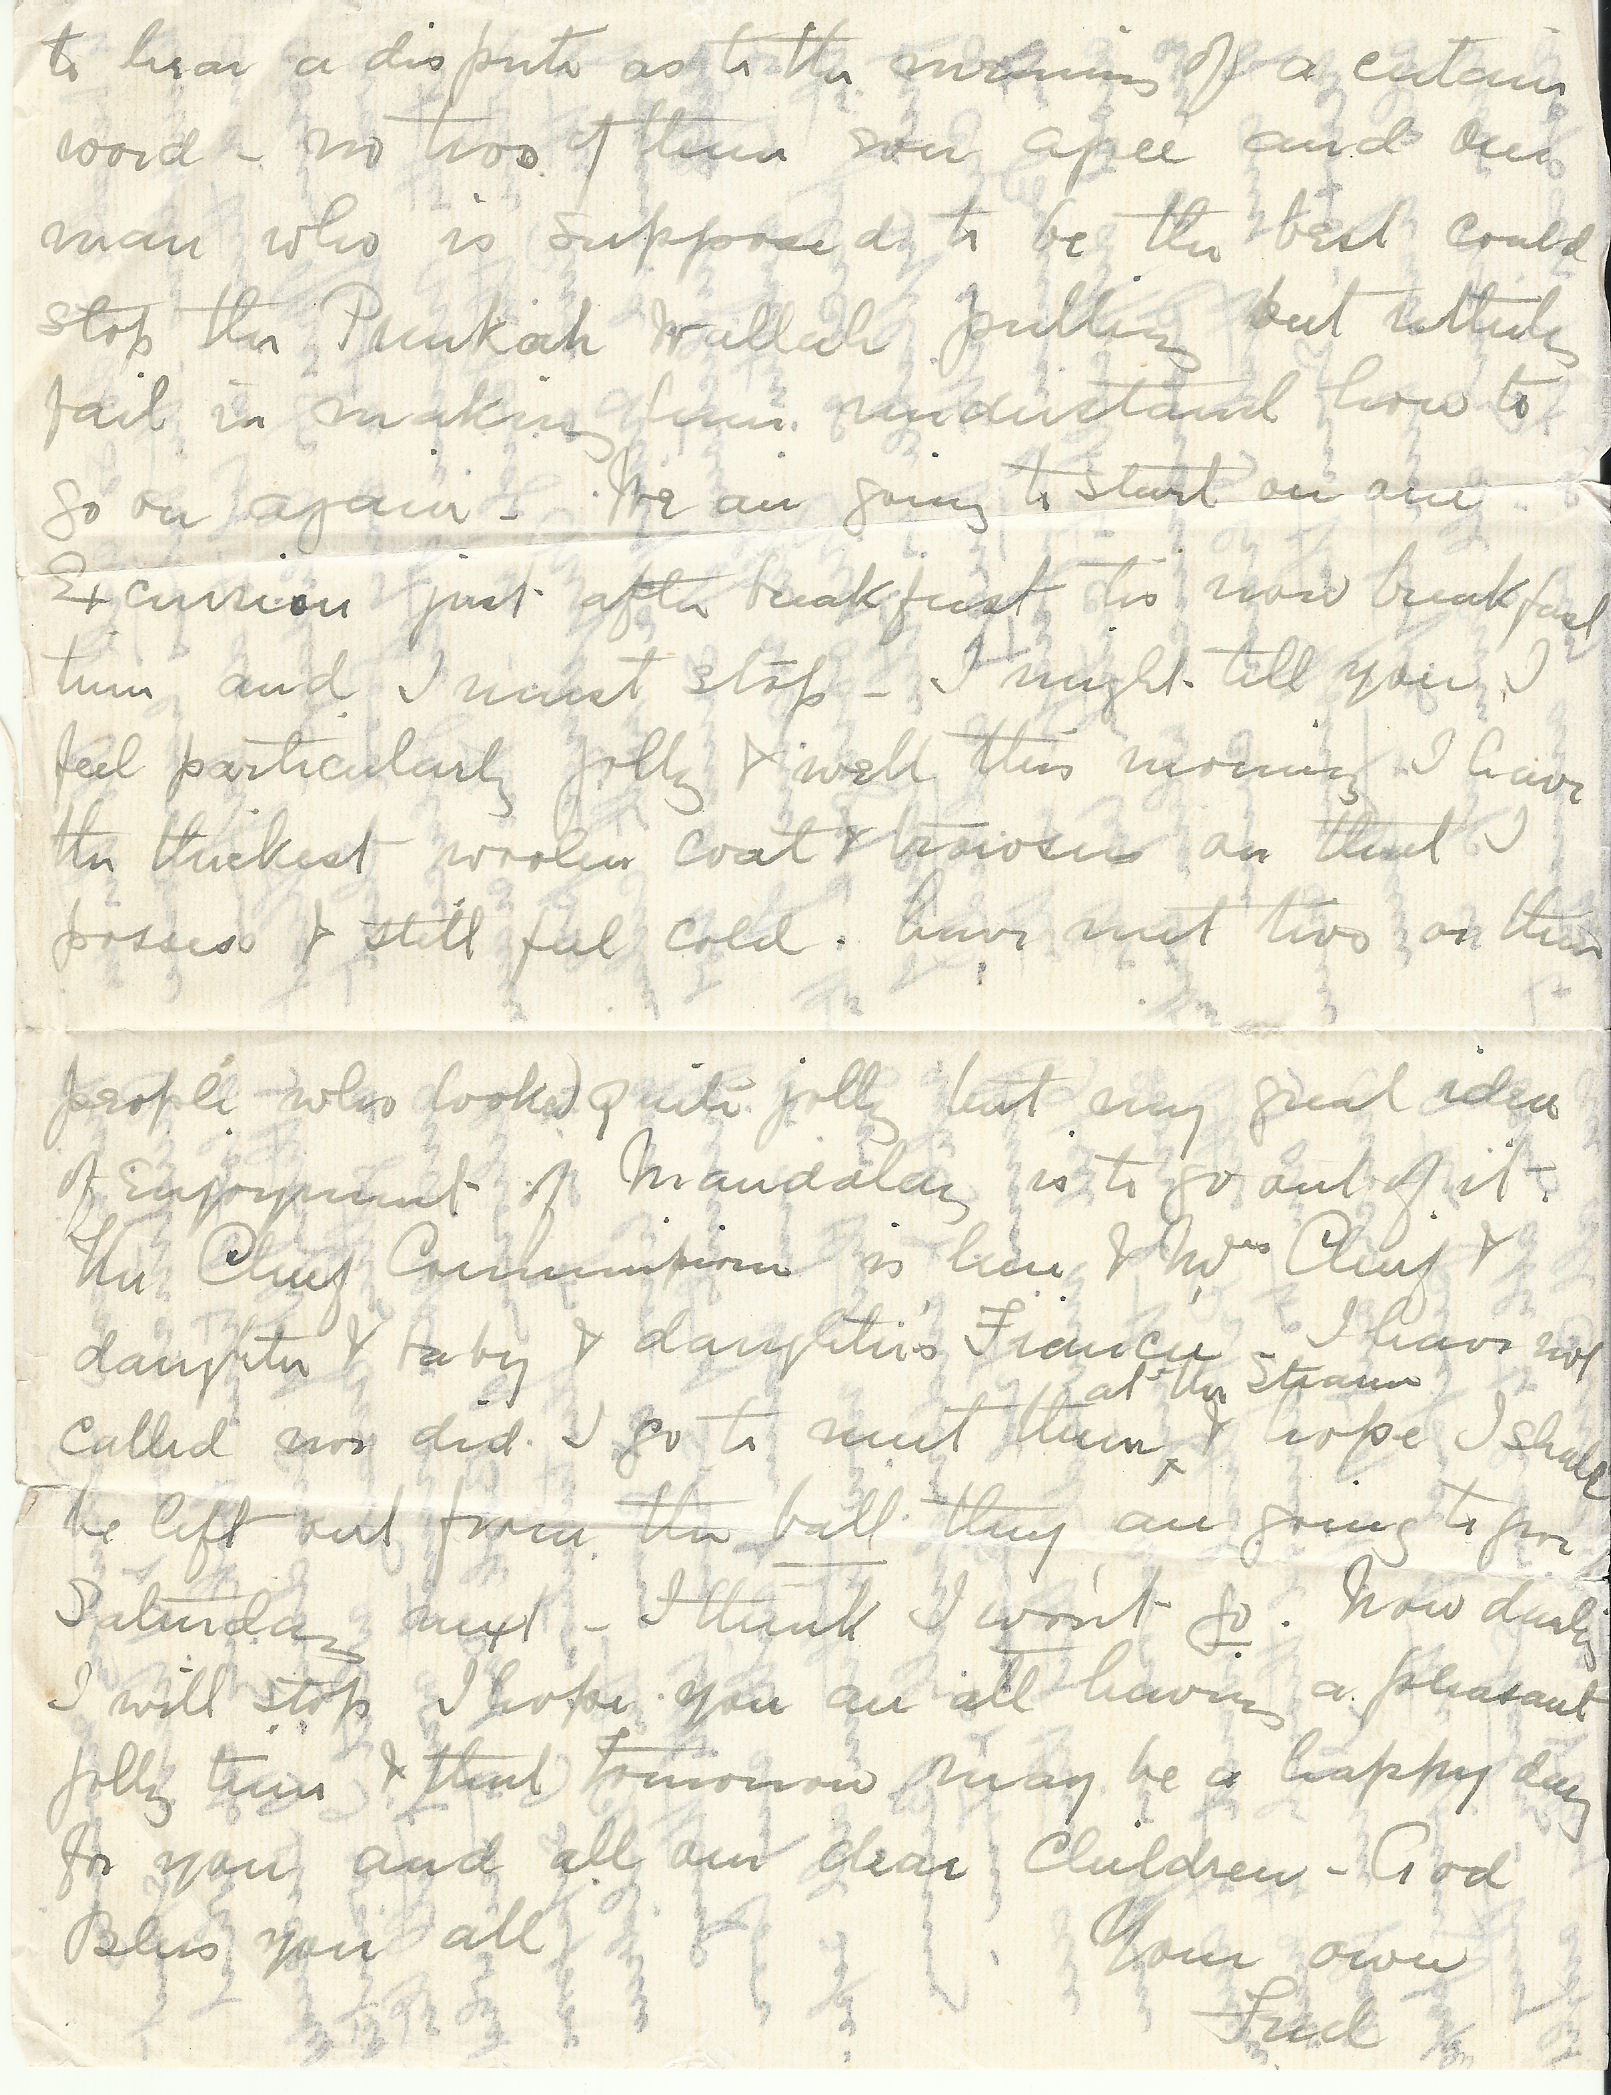 to hear a dispute as to the meaning of a certain
word - no two of them ever agree and one
man who is supposed to be the best could
stop the Punkah Wallah pulling but utterly
fail in making him understand how to
go on again - We are going to start on our
Excursion just after breakfast tis now breakfast
time and I must stop - I might tell you I
feel particularly jolly & well this morning I have
the thickest woolen coat & trousers on that I
possess & still feel cold. have met two or three
people who looked quite jolly but my great idea
of Enjoyment of Mandalay is to go out of it.
The Chief Commissioner is here & Mrs Chief &
daughter & baby & daughter's Fiancee - I have not
called nor did I go to meet them at the Steamer & hope I shall
be left out from the ball they are going to give
Saturday next - I think I won't go. Now darling
I will stop I hope you are all having a pleasant
jolly time & that Tomorrow may be a happy day
for you and all our dear Children - God
Bless you all
Your own
Fred